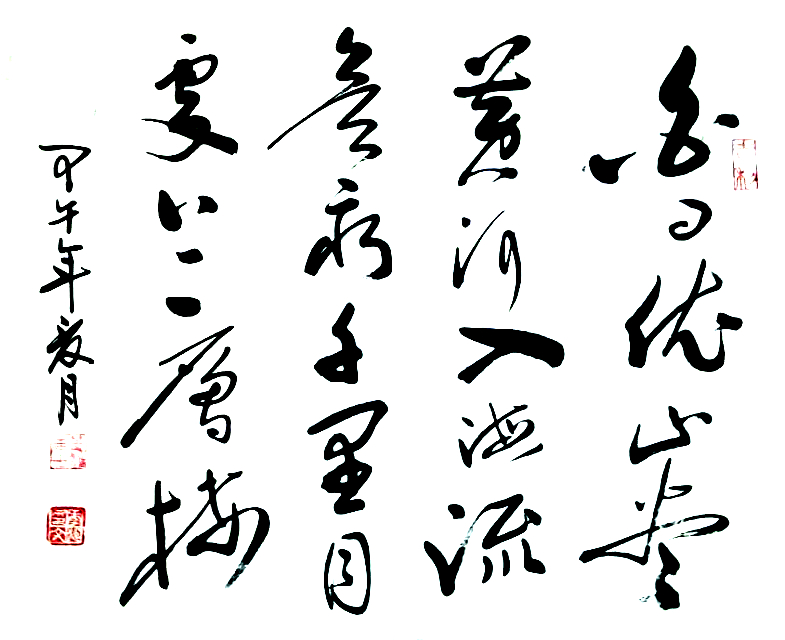 白日依山盡
黄河入海流
欲窮千里目
更上一層樓
甲午年夏月